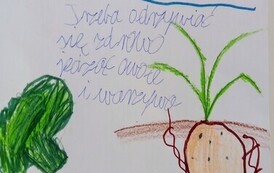 Trzeba odżywiać
się zdrowo
jedząc owoce
i warzywa